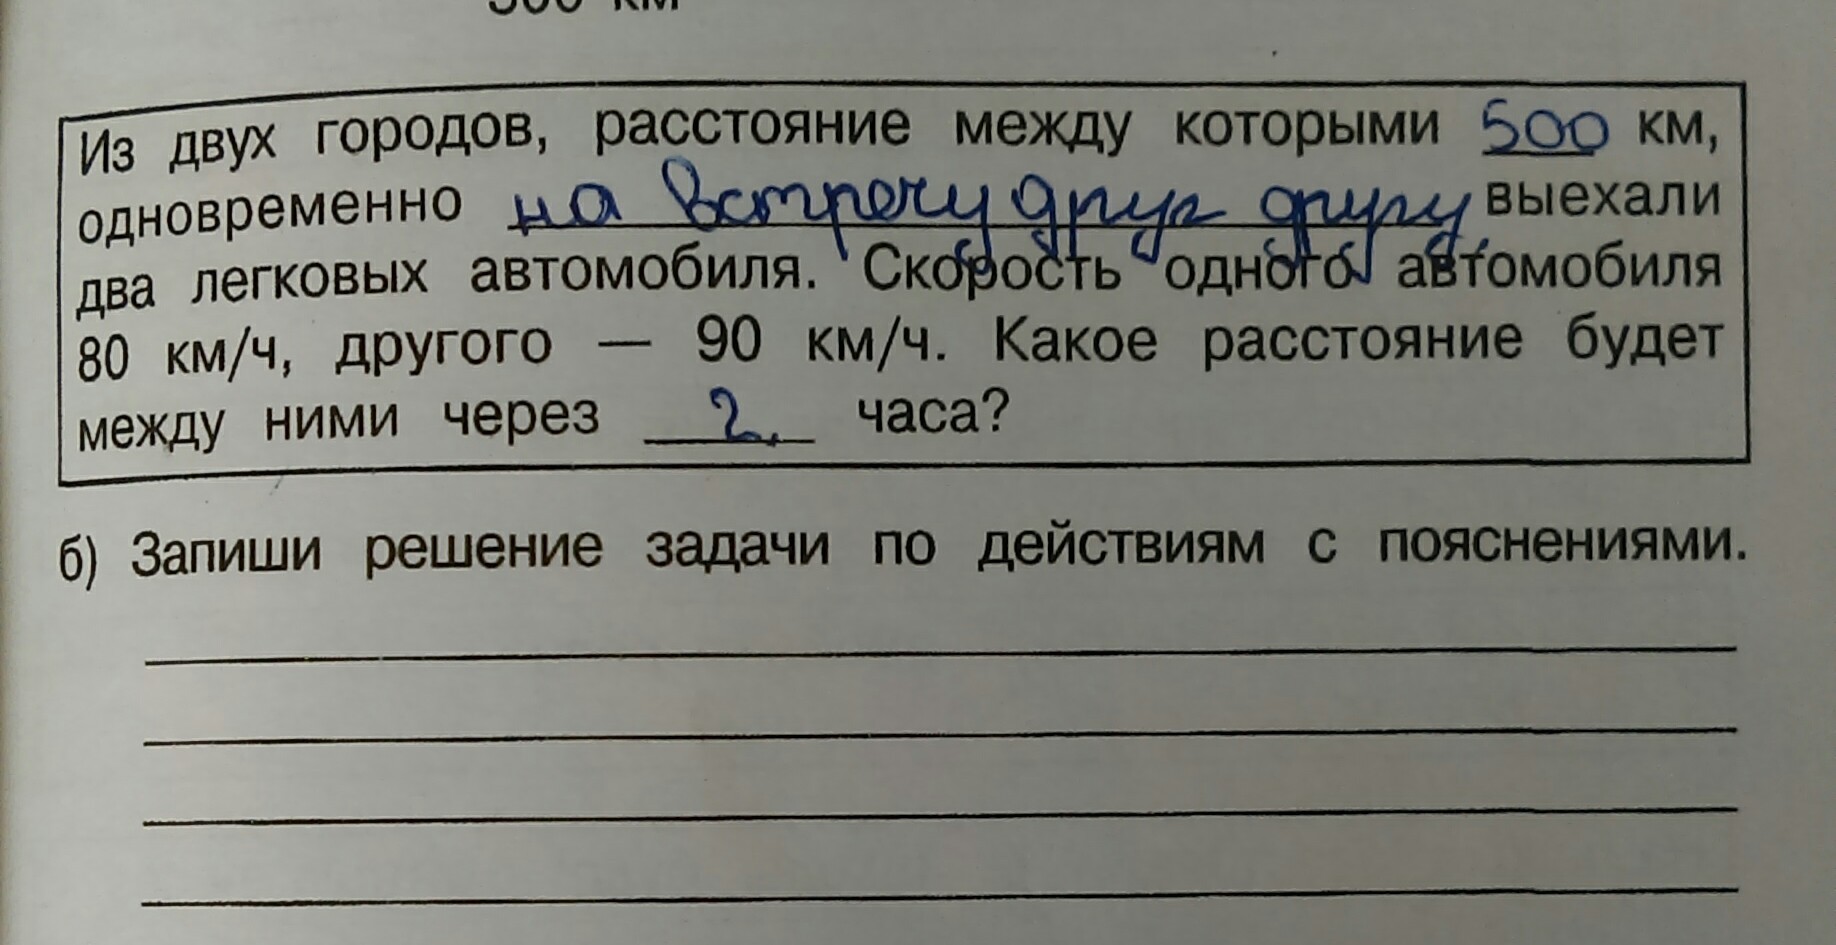 500 км
Из двух городов, расстояние между которыми 500 км,
одновременно на встречу друг другу выехали
два легковых автомобиля. Скорость одного автомобиля
80 км/ч, другого — 90 км/ч. Какое расстояние будет
между ними через 2 часа?
б) Запиши решение задачи по действиям с пояснениями.